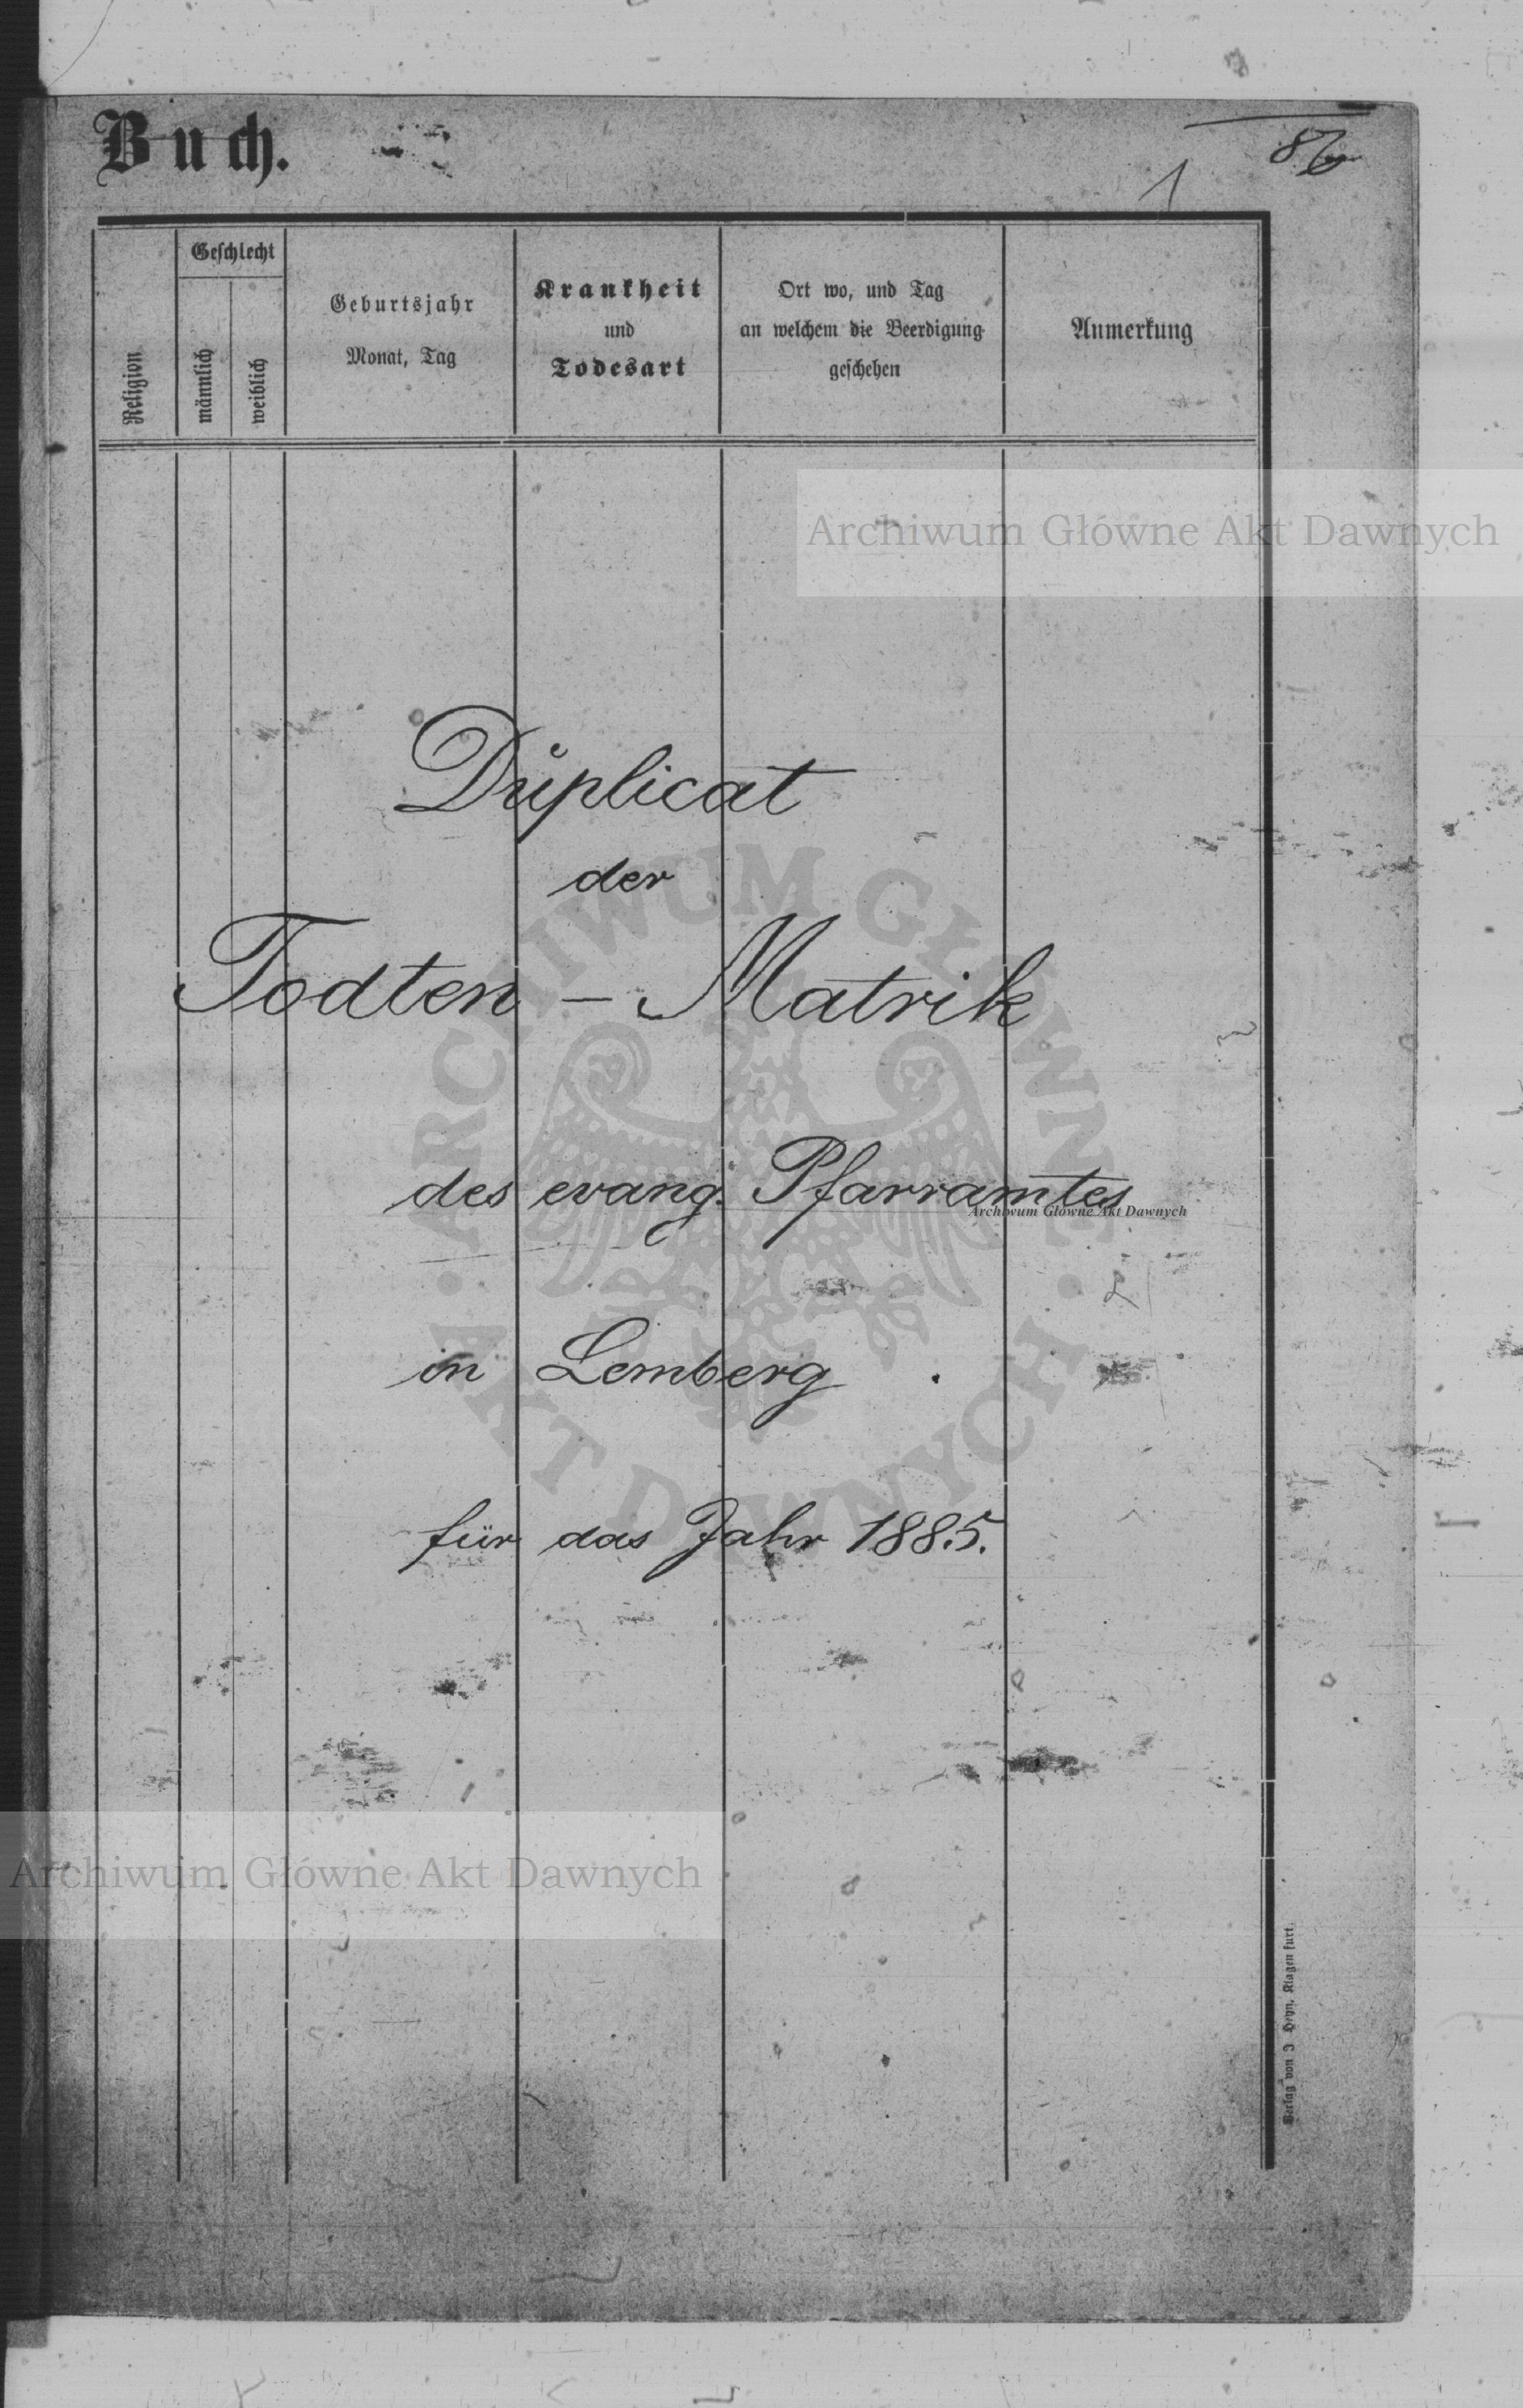 Buch.
1
86
Religion
Geschlecht
männlich
weiblich
Geburtsjahr
Monat, Tag
Krankheit
und
Todesart
Ort wo, und Tag
an welchem die Beerdigung
geschehen
Anmerkung
Archiwum Główne Akt Dawnych
Duplicat
der
Todten – Matrik
des evang. Pfarramtes
Archiwum Główne Akt Dawnych
in Lemberg.
für das Jahr 1885.
ARCHIWUM GŁÓWNE · AKT DAWNYCH ·
Archiwum Główne Akt Dawnych
Verlag von J Heyn, Klagenfurt.